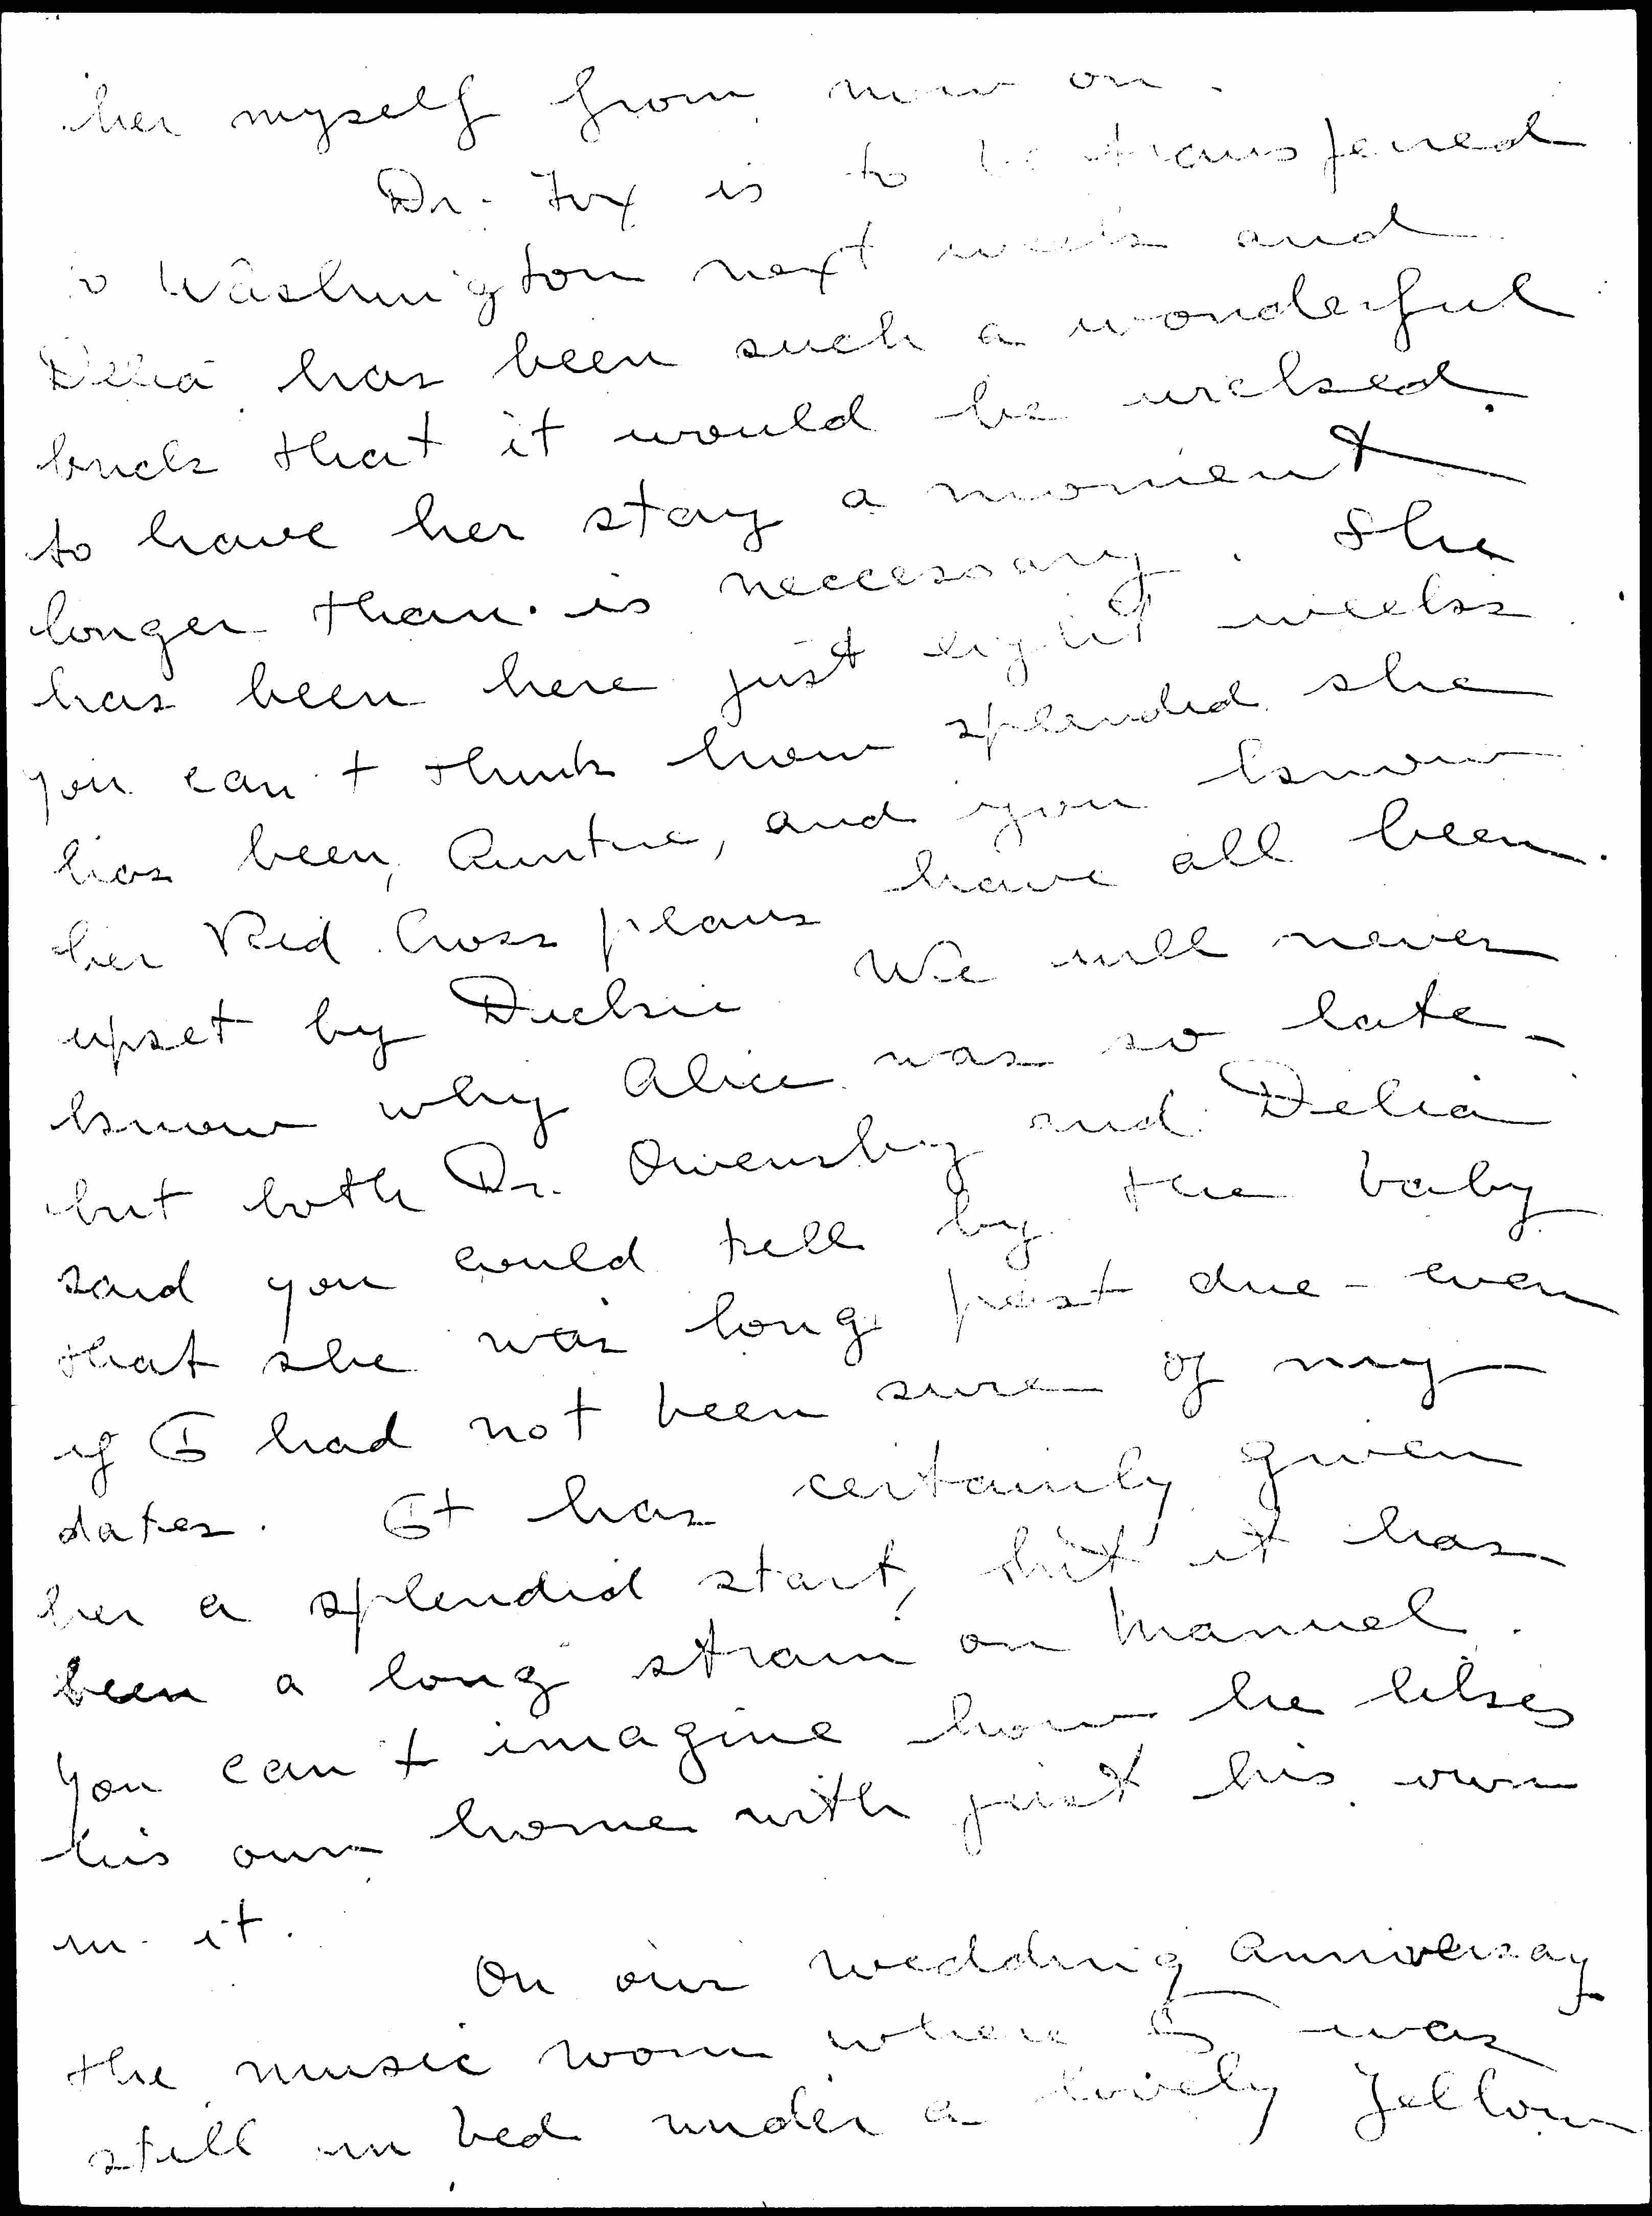 her myself from now on.
Dr. Fox is to be transferred
to Washington next week and
Delia has been such a wonderful
brick that it would be wicked
to have her stay a moment
longer than is neccessary. She
has been here just eight weeks
you can't think how splendid she
has been, Auntie, and you know
her Red Cross plans have all been
upset by Duckie We will never
know why Alice was so late -
but both Dr. Owensby and Delia
said you could tell by the baby
that she was long past due - even
if I had not been sure of my
dates. It has certainly given
her a splendid start, but it has
been a long strain on Manuel.
You can't imagine how he likes
his own home with just his own
in it.
On our wedding anniversay
the music room where I was
still in bed under a lovely Yellow